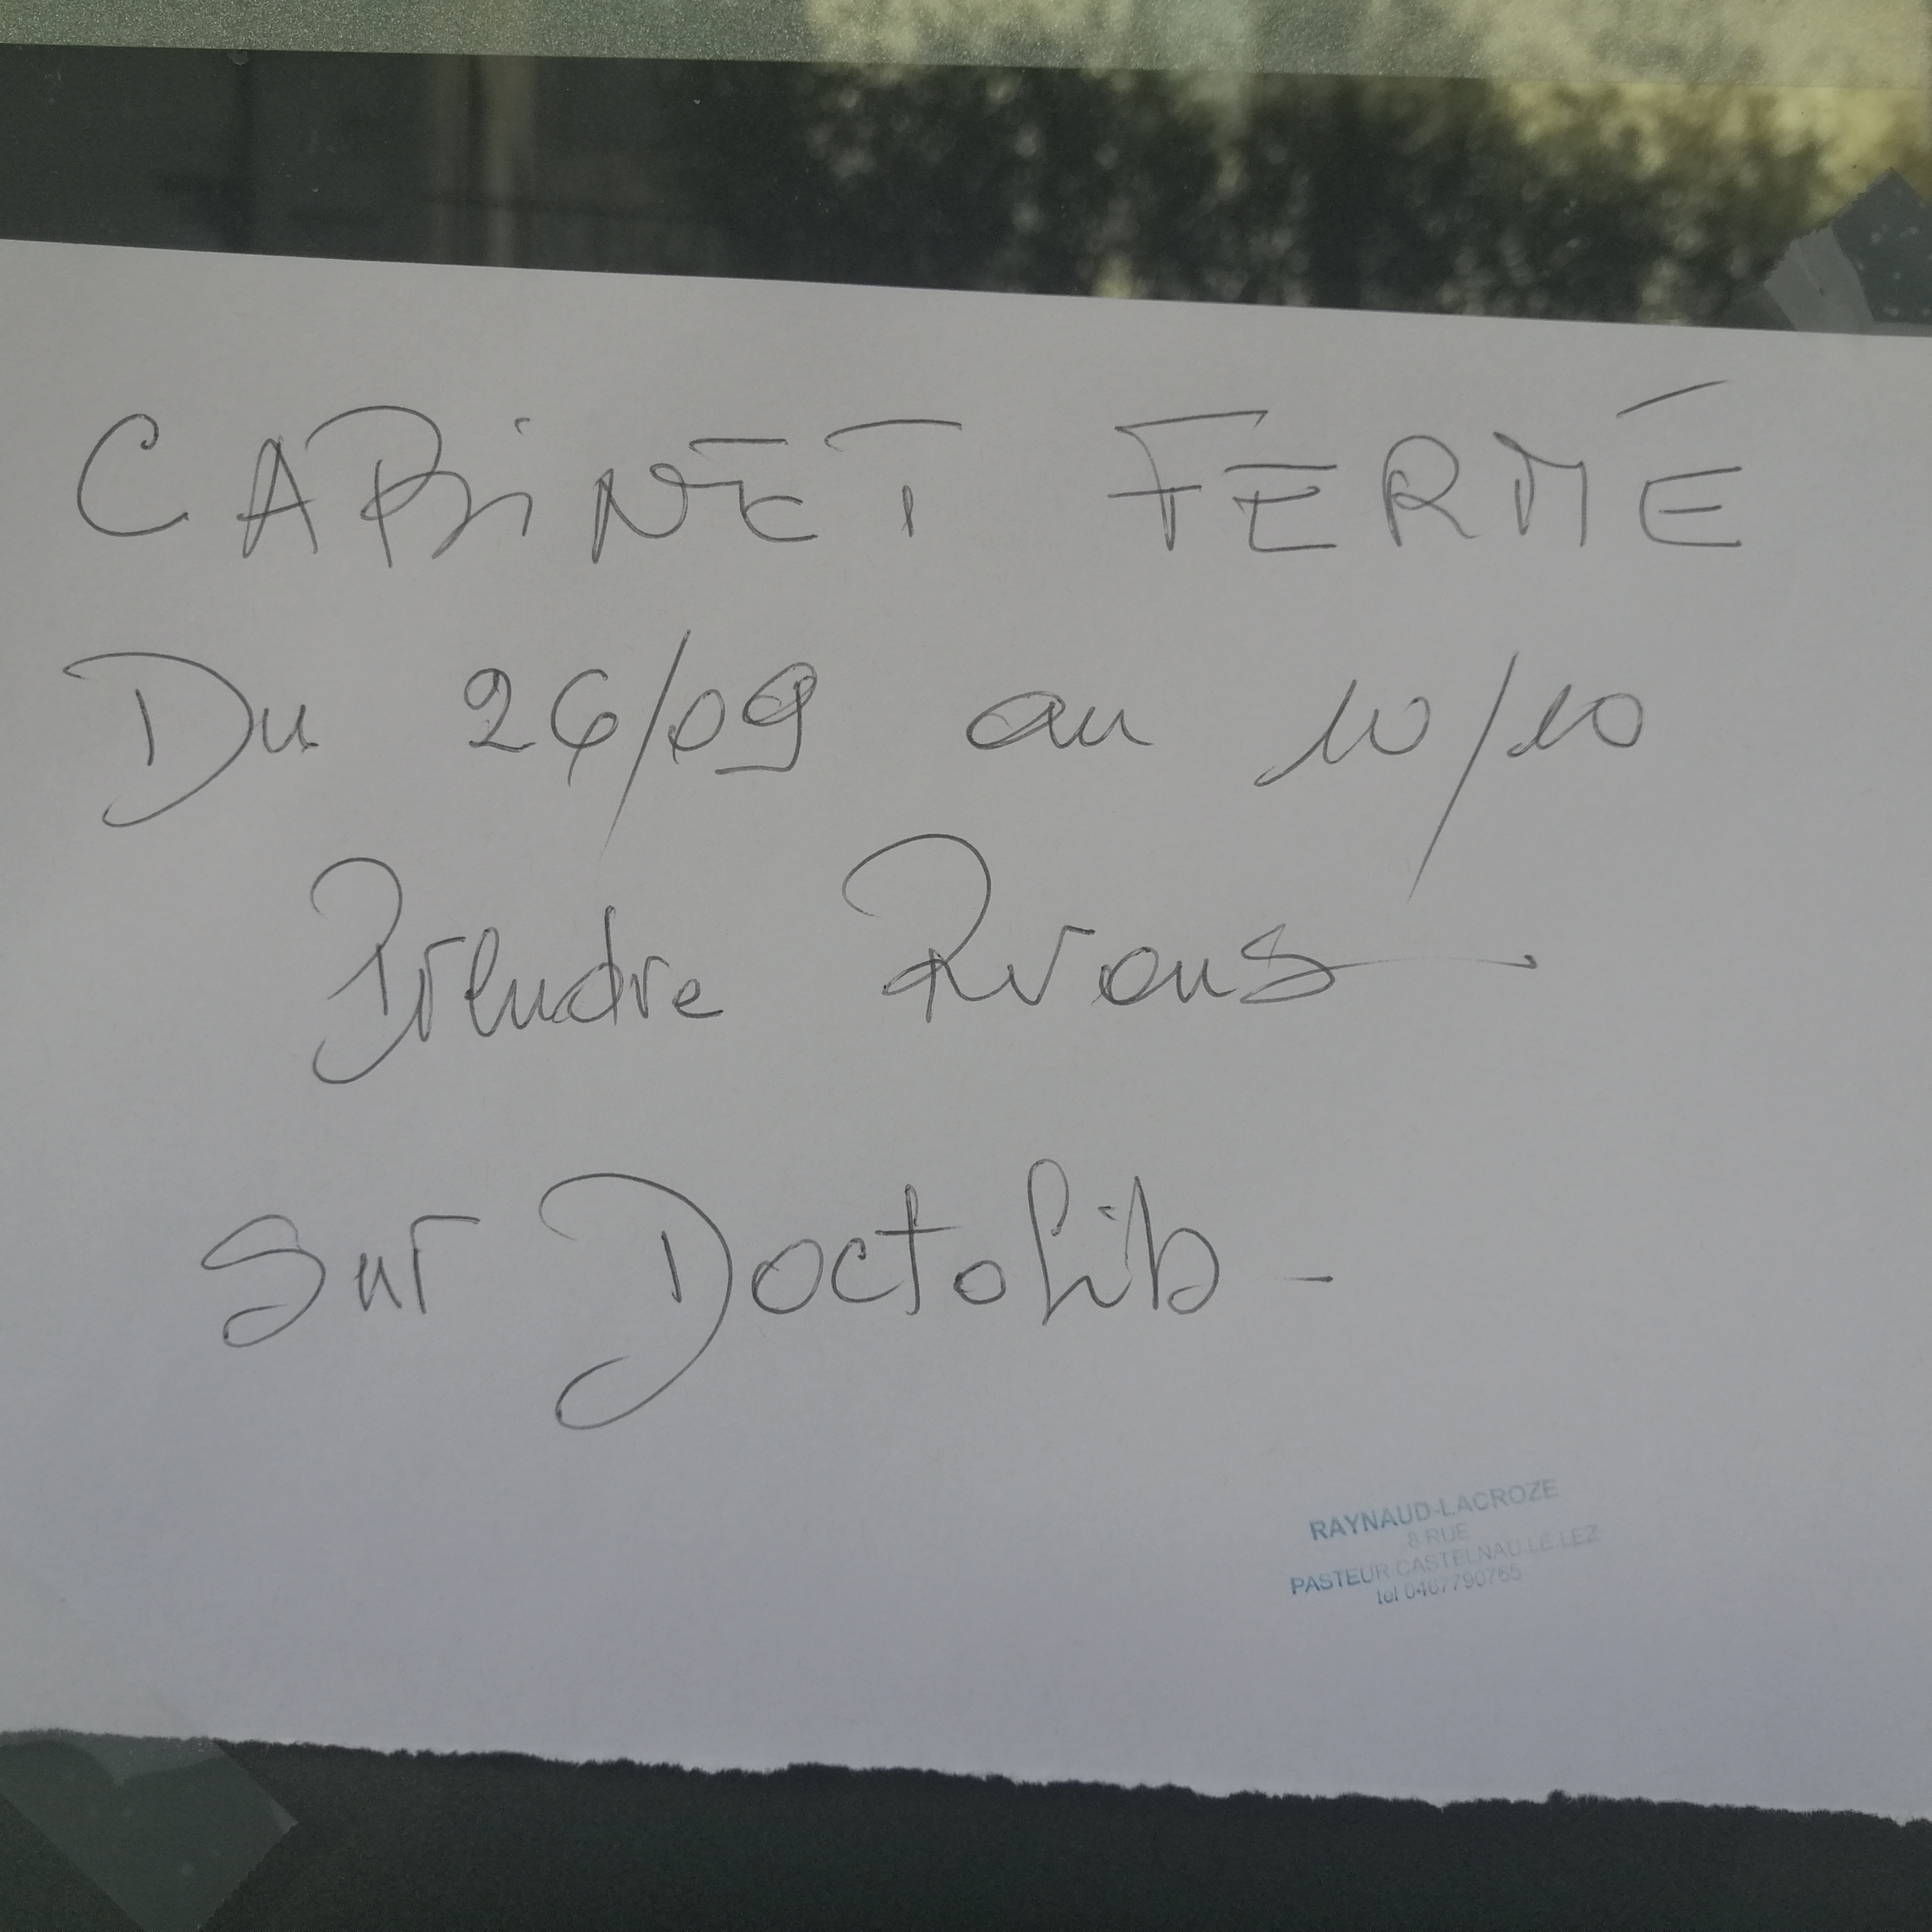 CABiNET FERMÉ
Du 26/09 au 10/10
Prendre Rvous
sur Doctolib -
RAYNAUD-LACROZE
8 RUE
PASTEUR CASTELNAU LE LEZ
tel 0467790765